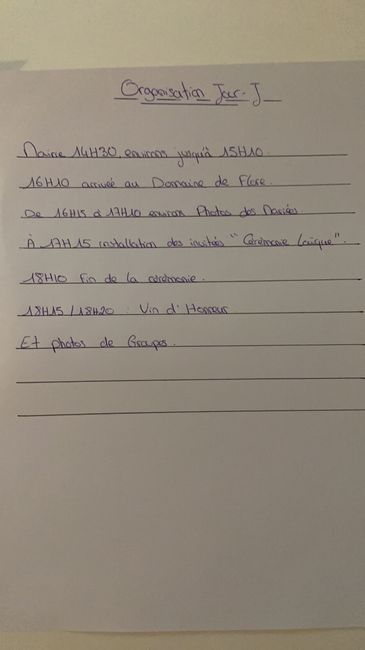 Organisation Jour-J
Mairie 14H30, environ jusqu'à 15H10.
16H10 arrivée au Domaine de Flore.
De 16H15 à 17H10 environ Photos des Mariés
À 17H15 installation des invités "Cérémonie Laïque".
18H10 Fin de la cérémonie.
18H15 / 18H20 : Vin d'Honneur
Et photos de Groupes.